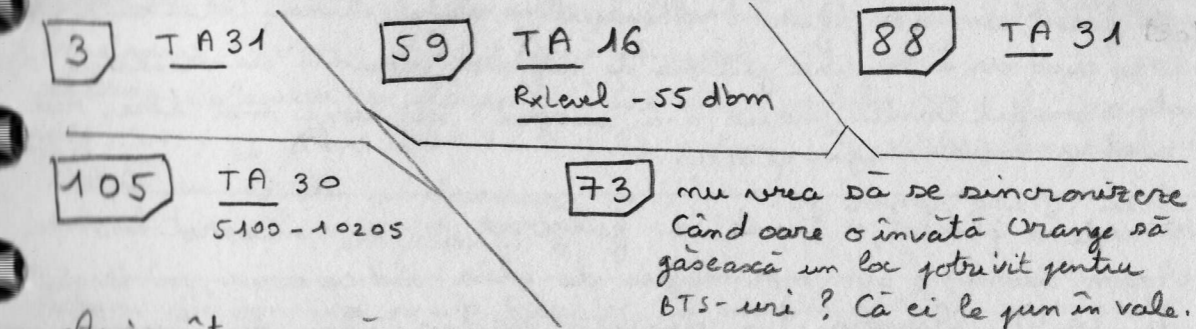 3 TA 31
59 TA 16
RxLevel -55 dbm
88 TA 31
105 TA 30
5100-10205
73 nu vrea să se sincronizeze
Când oare o învăta Orange să
găsească un loc potrivit pentru
BTS-uri? Că ei le pun în vale.